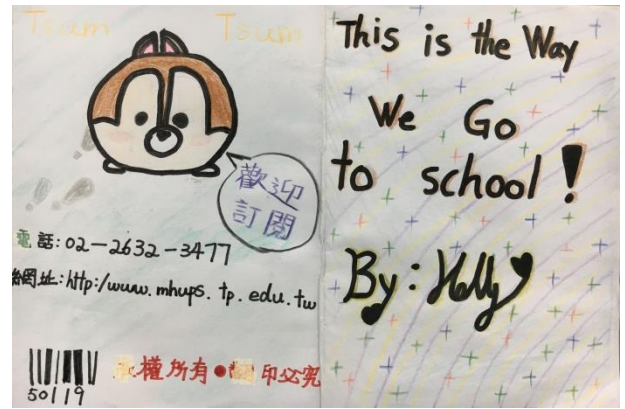 Tsum Tsum
歡迎
訂閱
電話:02-2632-3477
網址:http:/www.mhups.tp.edu.tw
權所有●印必究
50119
This is the Way
We Go
to school!
By: Holly